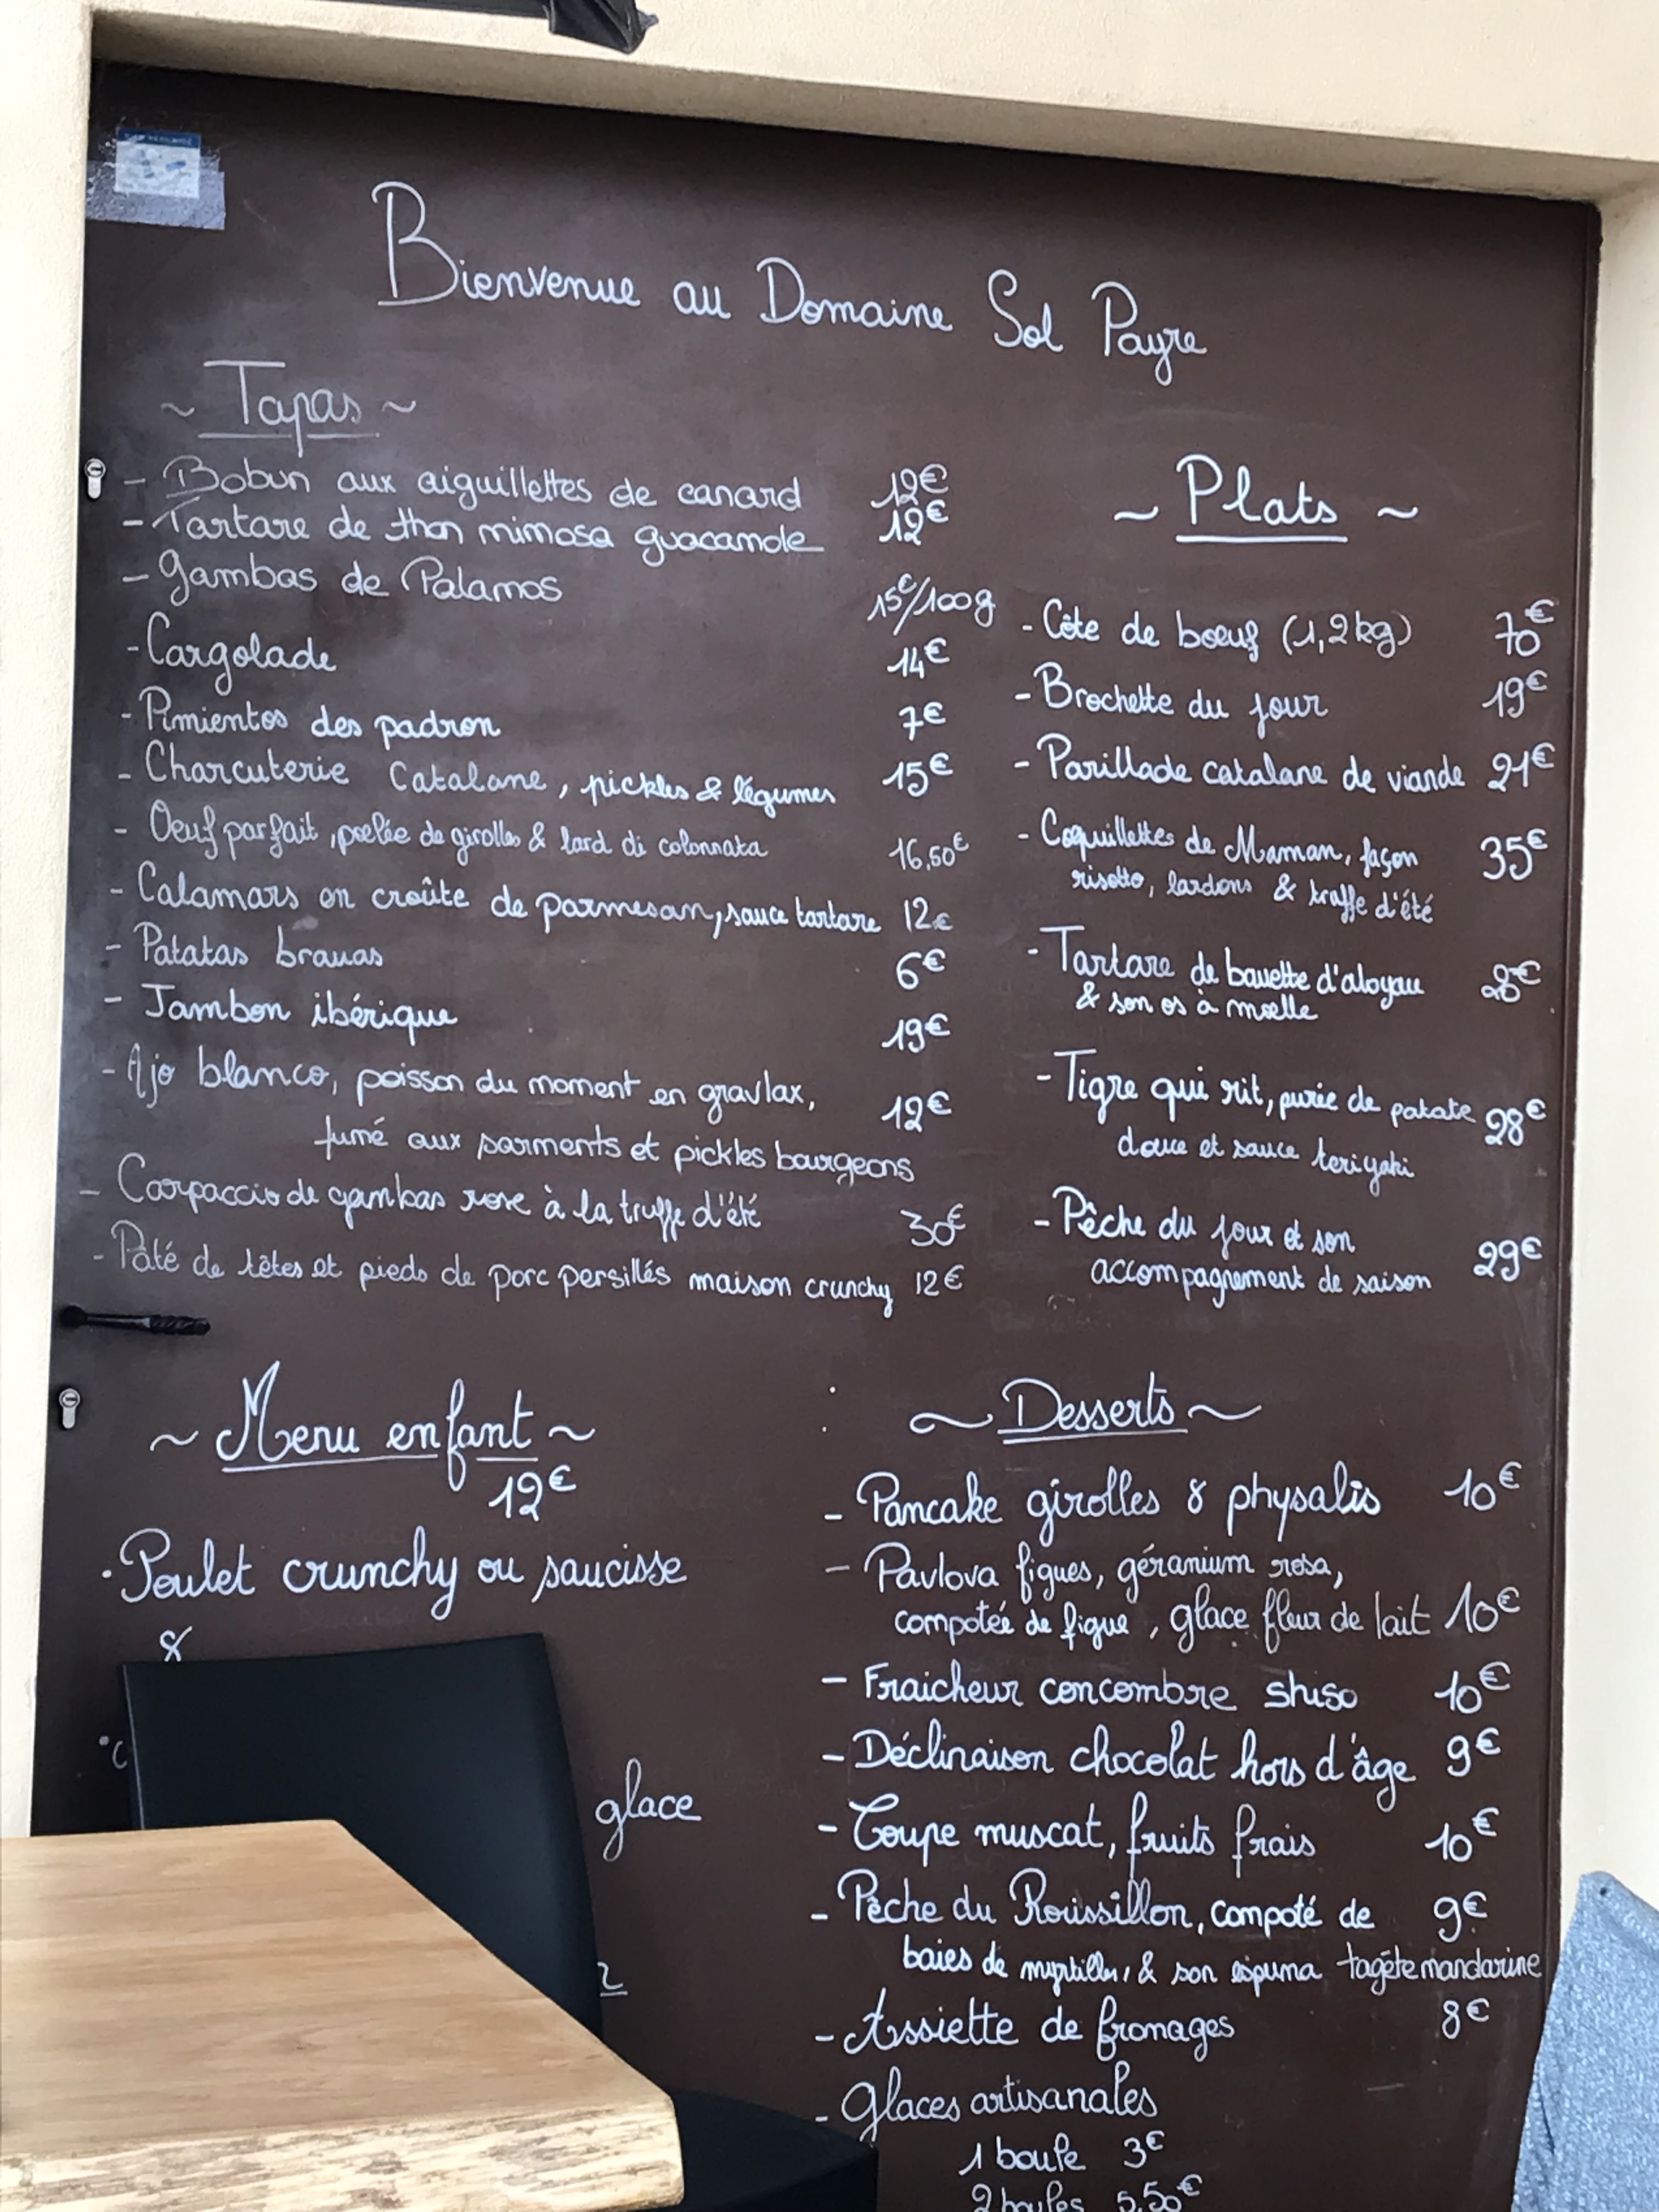 Bienvenue au Domaine Sol Payre
~ Tapas ~
- Bobun aux aiguillettes de canard 12€
- Tartare de thon mimosa guacamole 12€
- Gambas de Palamos 15€/100g
- Cargolade 14€
- Pimientos des padron 7€
- Charcuterie Catalane, pickles & légumes 15€
- Oeuf parfait, poelée de girolles & lard di colonnata 16,50€
- Calamars en croûte de parmesan, sauce tartare 12€
- Patatas bravas 6€
- Jambon ibérique 19€
- Ajo blanco, poisson du moment en gravlax, 12€
fumé aux sarments et pickles bourgeons
- Carpaccio de gambas rose à la truffe d'été 30€
- Pâté de têtes et pieds de porc persillés maison crunchy 12€
~ Plats ~
- Côte de boeuf (1,2kg) 70€
- Brochette du jour 19€
- Parillade catalane de viande 21€
- Coquillettes de Maman, façon 35€
risotto, lardons & truffe d'été
- Tartare de bavette d'aloyau
& son os à moelle
- Tigre qui rit, purée de patate 28€
douce et sauce teriyaki
- Pêche du jour et son 29€
accompagnement de saison
~ Menu enfant ~
12€
· Poulet crunchy ou saucisse
&
glace
~ Desserts ~
- Pancake girolles & physalis 10€
- Pavlova figues, géranium rosa,
compotée de figue, glace fleur de lait 10€
- Fraicheur concombre shiso 10€
- Déclinaison chocolat hors d'âge 9€
- Coupe muscat, fruits frais 10€
- Pêche du Roussillon, compoté de 9€
baies de myrtilles, & son espuma tagète mandarine
- Assiette de fromages 8€
- Glaces artisanales
1 boule 3€
2 boules 5,50€